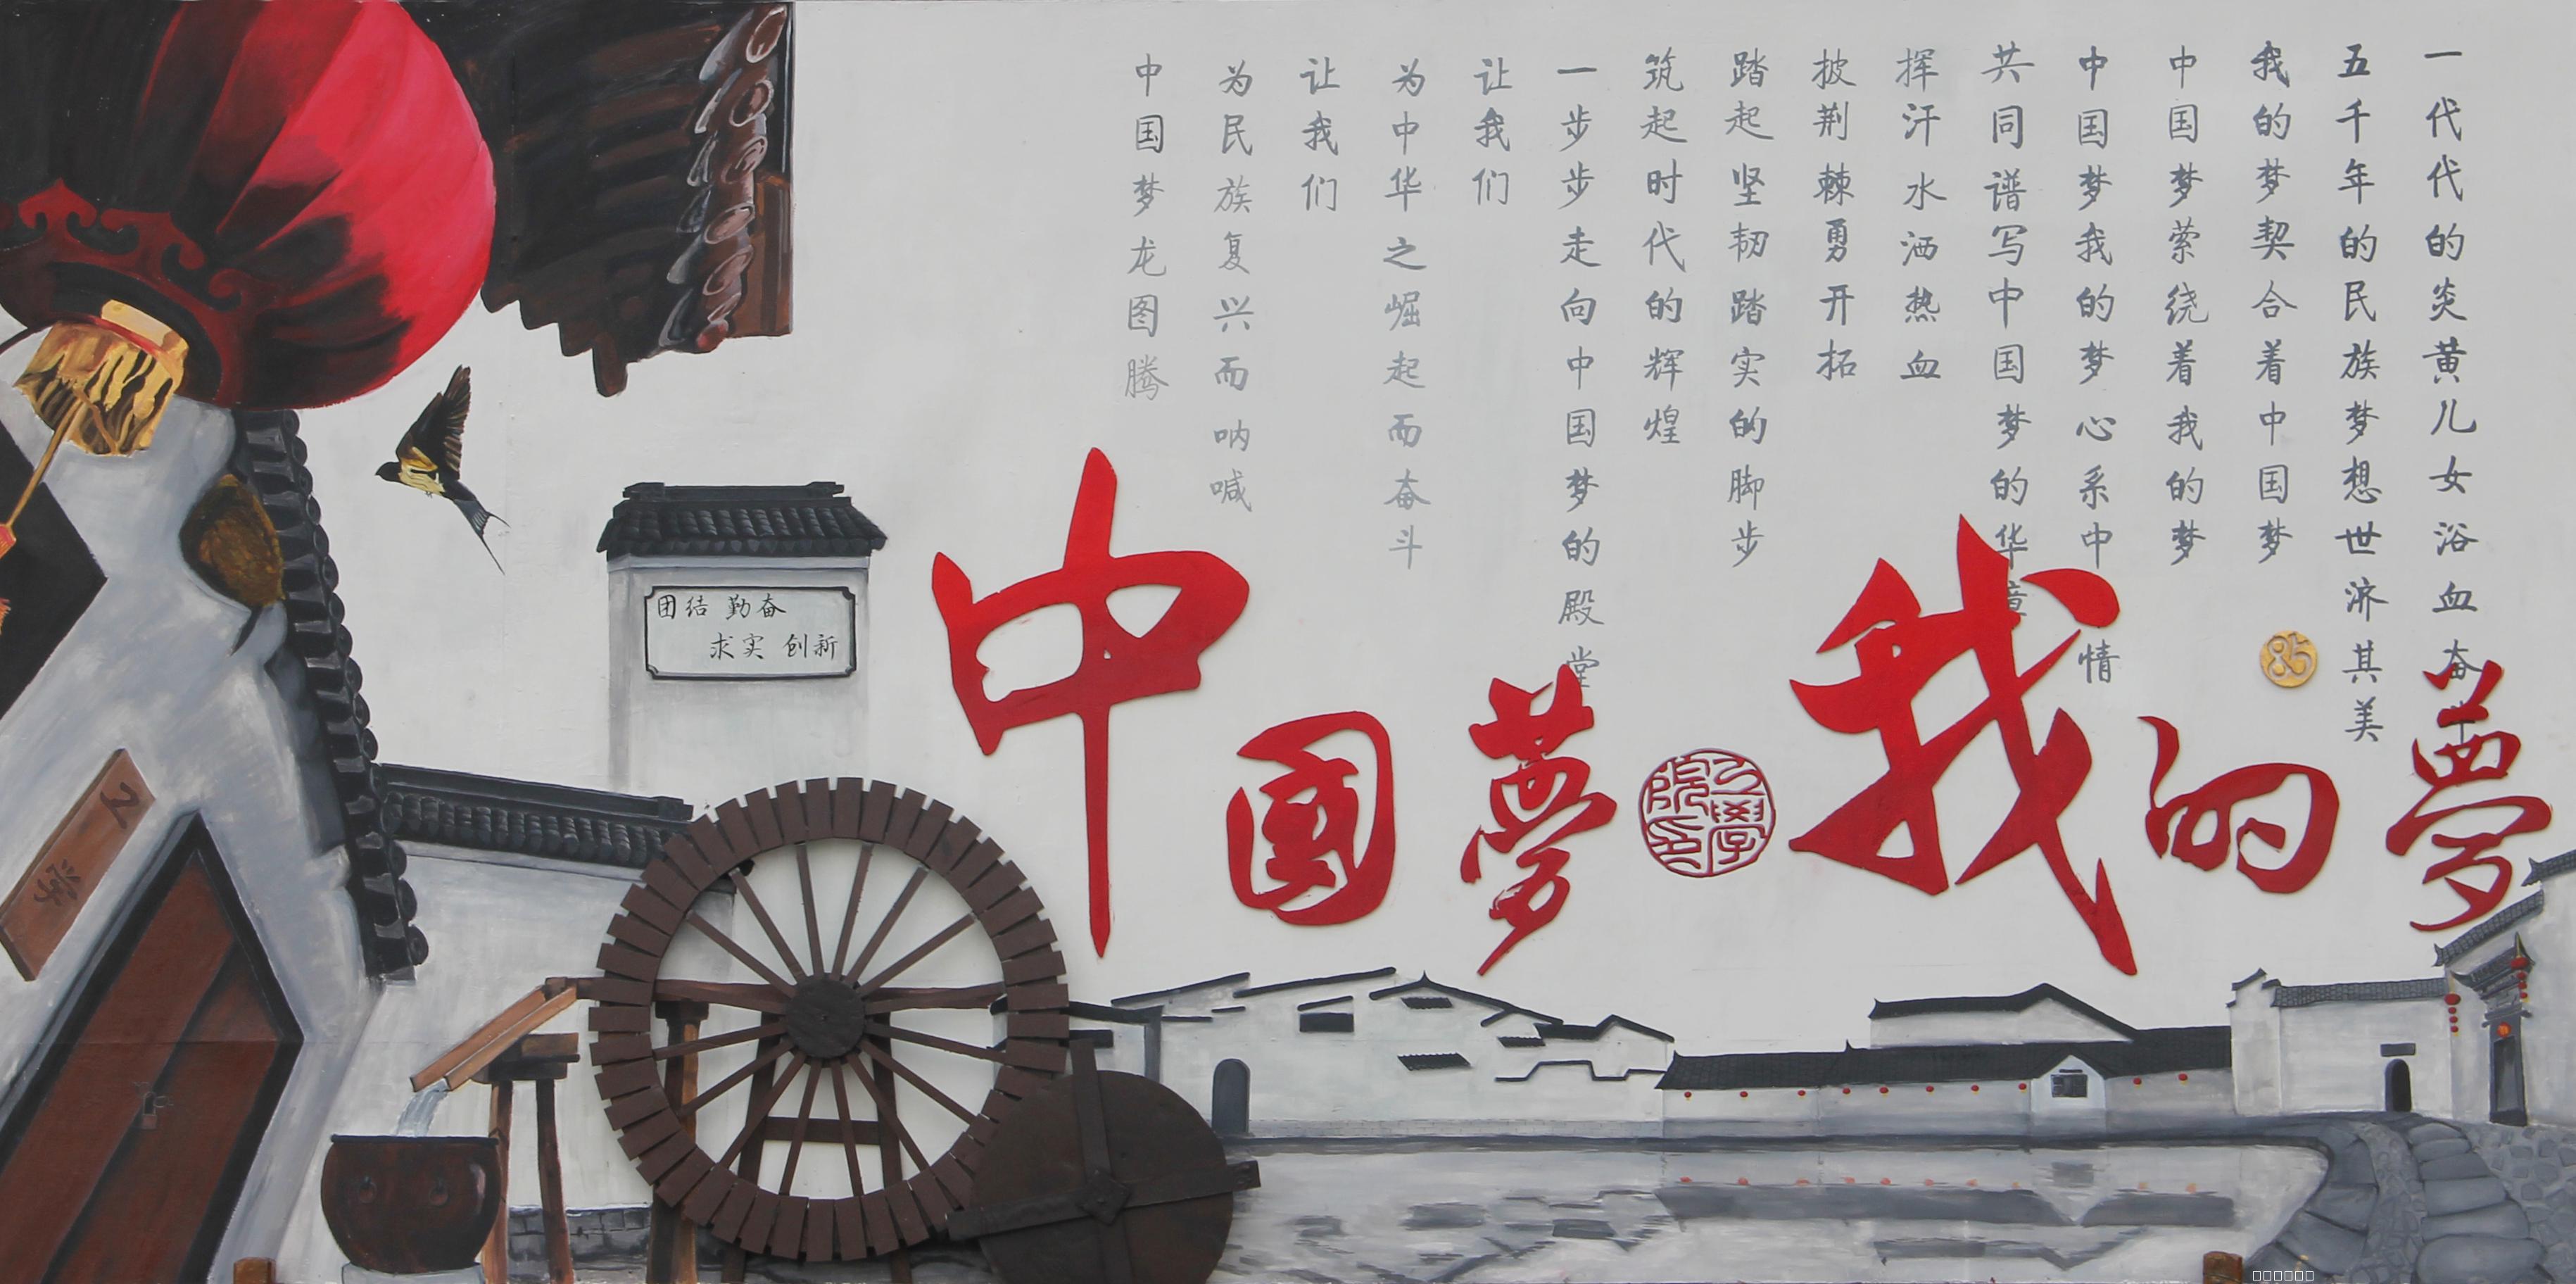 一代代的炎黄儿女浴血奋
五千年的民族梦想世济其美
我的梦契合着中国梦
中国梦萦绕着我的梦
中国梦我的梦心系中情
共同谱写中国梦的华章
挥汗水洒热血
披荆棘勇开拓
踏起坚韧踏实的脚步
筑起时代的辉煌
一步步走向中国梦的殿堂
让我们
为中华之崛起而奋斗
让我们
为民族复兴而呐喊
中国梦龙图腾
中國夢
我的夢
工学院印
85
团结 勤奋
求实 创新
工学